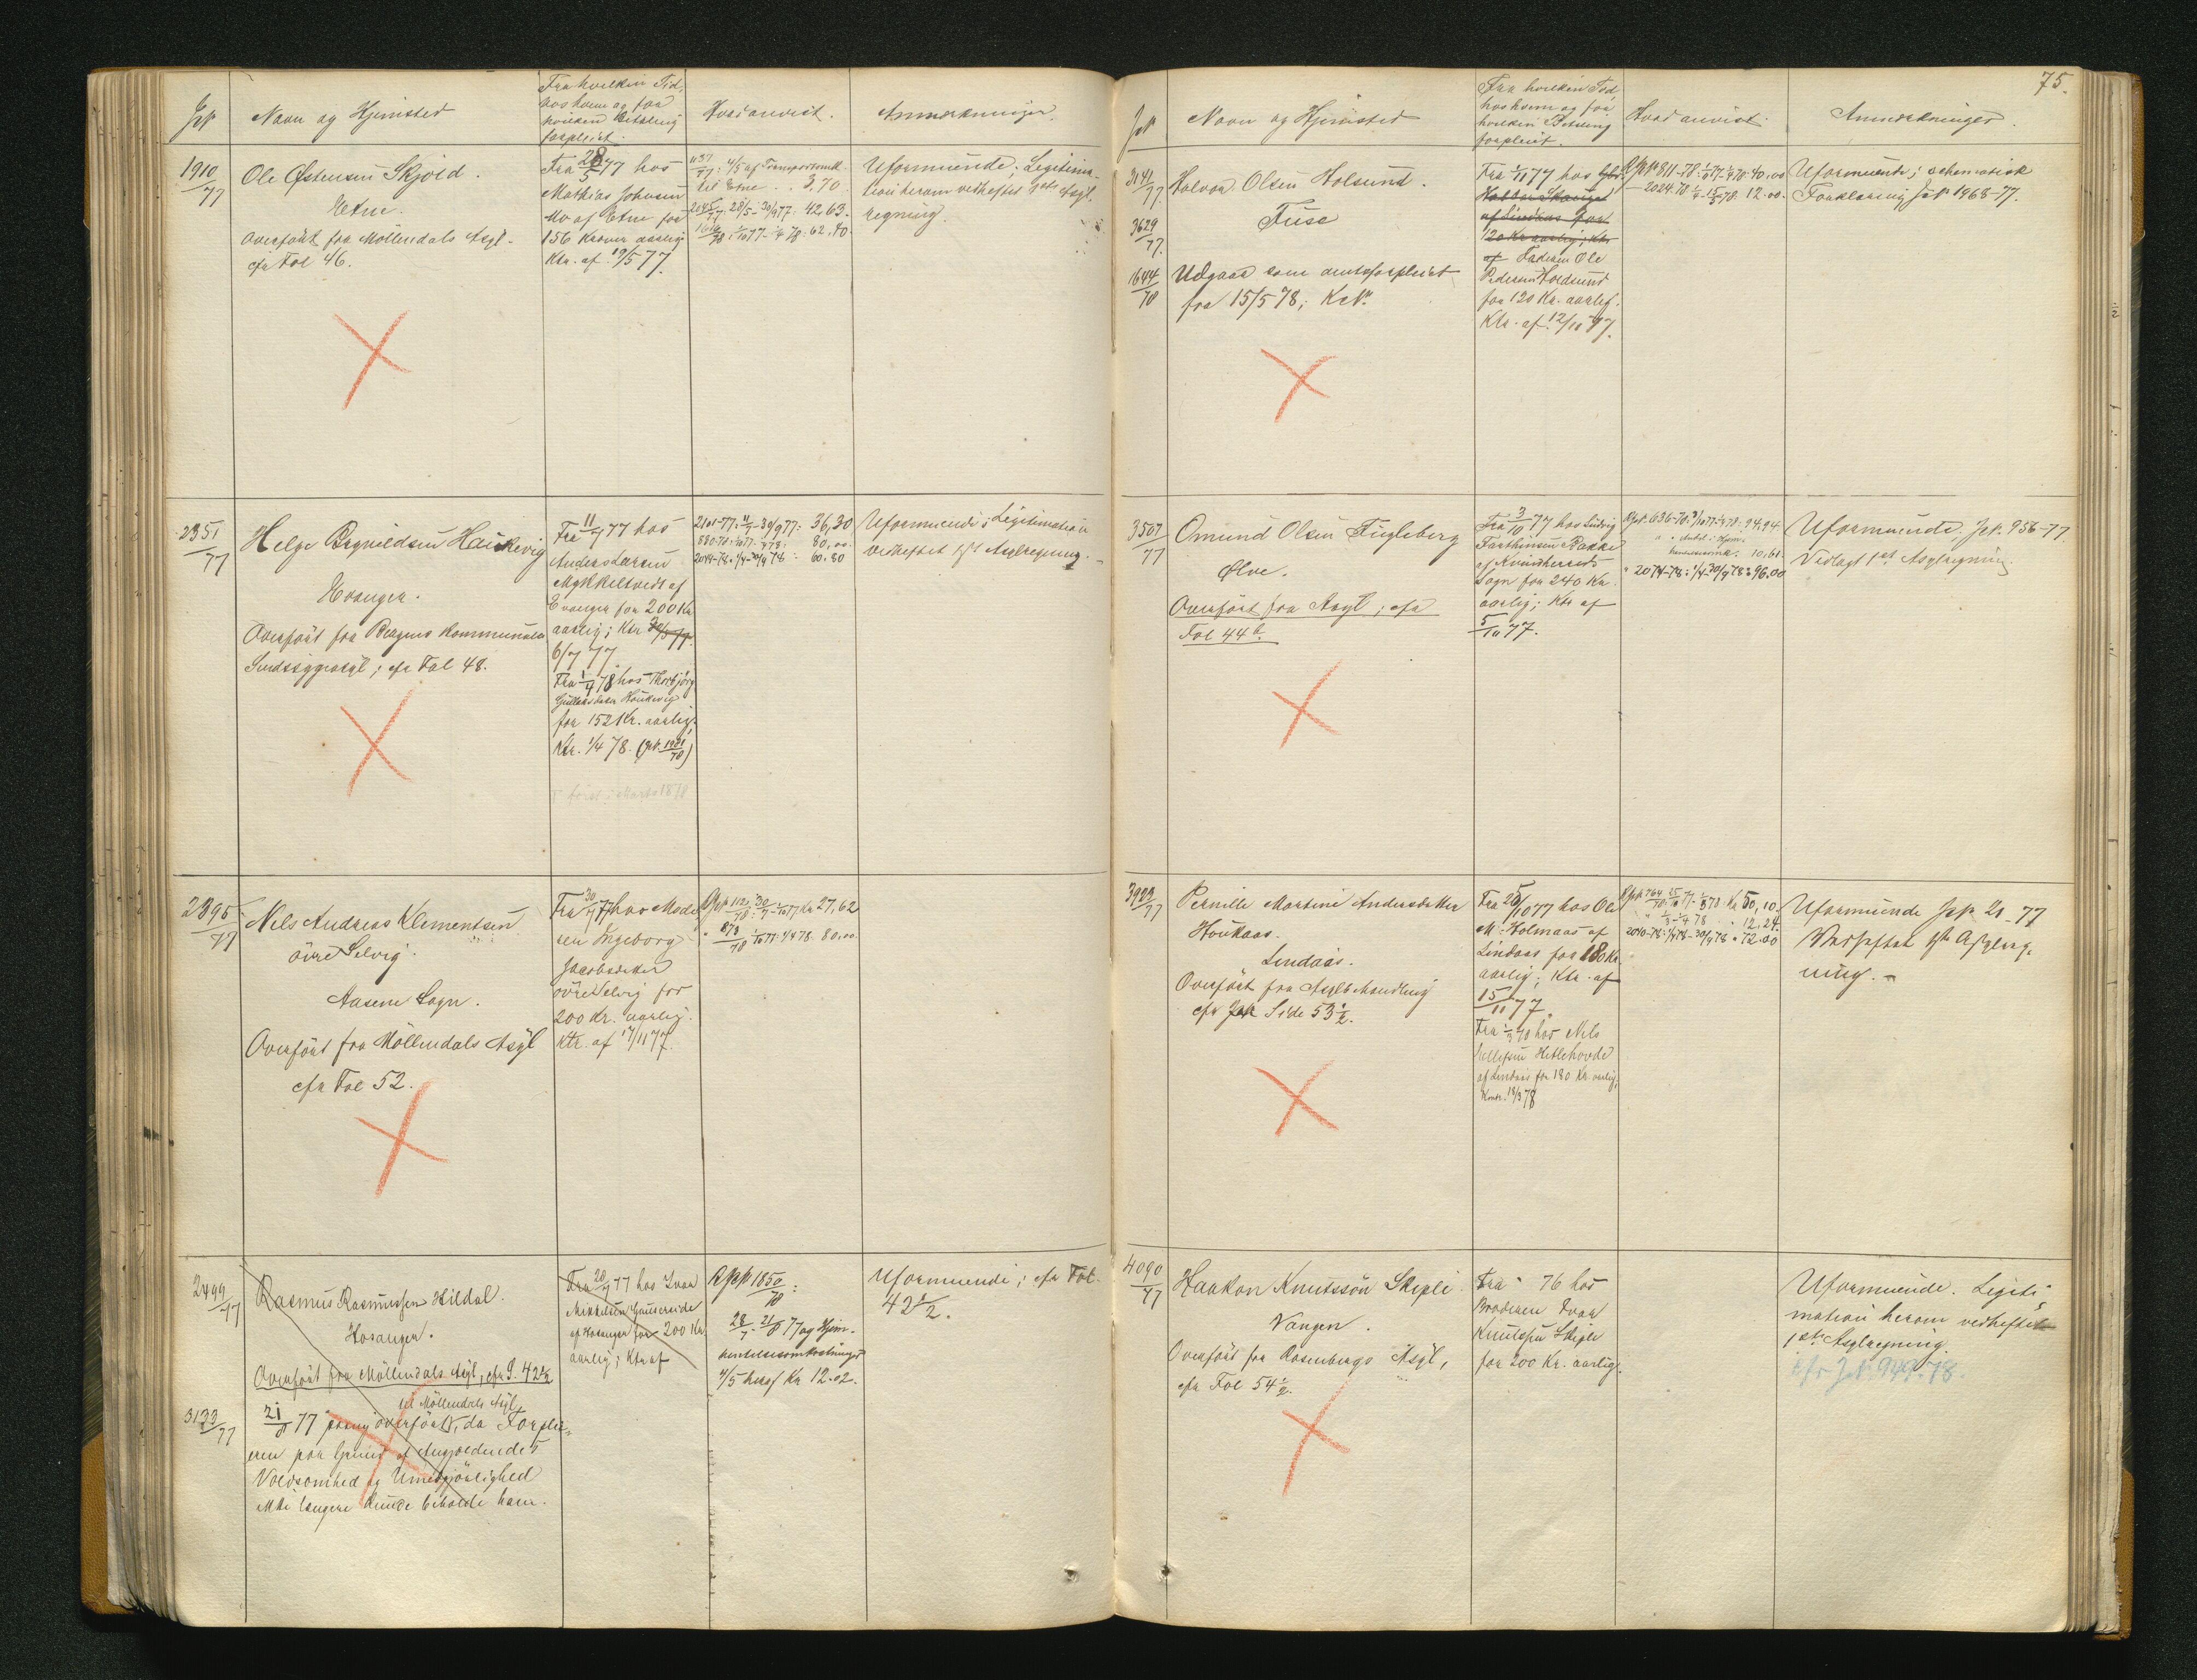 JN
Navn og Hjemsted
Fra hvilken Tid,
hos hvem og for
hvilken Betaling
forpleiet.
Hvad anvist.
Anmærkninger.
1910/77
Ole Østensen Skjold.
Etne.
Overført fra Möllendals Asyl.
cfr Fol 46.
Fra 28/5 77 hos
Mathias Johnsen
Mo af Etne for
156 Kroner aarlig
Ktr. af 19/5 77.
1137/77: 4/5 af Transportomk.
til Etne . . 3,70.
2045/77: 28/5 - 30/9 77: 42,63.
78: 1/10 77 - 1/4 78: 62,40.
Uformuende; Legitima-
tion herom vedheftet 1ste Asyl-
regning.
2351/77
Helge Brynildsen Haukevig
Evanger.
Overført fra Bergens kommunale
Sindssygeasyl; cfr Fol 48.
Fra 11/7 77 hos
Anders Larsen
Mykkeltvedt af
Evanger for 200 Kr
aarlig; Ktr
6/7 77.
Fra 1/4 78 hos Thorbjörg
Gullaksdatter Haukevig
for 152 Kr. aarlig.
Ktr. 1/4 78.
2101-77: 11/7 - 30/9 77: 36,30
880-78: 1/10 77 - 1/4 78: 80,00
2044-78: 1/4 - 30/9 78: 60.80
Uformuende; Legitimation
vedheftet 1ste Asylregning.
2895/77
Nels Andreas Klementsen
övre Selvig.
Aasene Sogn.
Overført fra Möllendals Asyl
cfr Fol 52.
Fra 30/7 77 hos Mode-
ren Ingeborg
Jacobsdatter
övre Selvig for
200 Kr. aarlig.
Ktr. af 17/11 77.
Rpp 112/78: 30/7 - 1/10 77 Kr 27,62
" 873/78 1/10 77 - 1/4 78. 80,00
2499/77
Rasmus Rasmussen Hildal.
Hosanger.
Overført fra Möllendals Asyl, cfr S. 42 1/2
Fra 28/7 77 hos Ivar
Mikkelsen Gausereide
af Hosanger for 200 Kr
aarlig; Ktr af
Rpp 1850/78:
28/7 - 21/8 77 og Hjem-
hentelsesomkostninger
4/5 heraf Kr 12.02.
Uformuende; cfr Fol.
42 1/2.
3133/77
til Möllendals Asyl,
21/8 77 overført, da Forplei-
eren paa Grund af Angjældendes
Voldsomhed og Umedgjörlighed
ikke længere kunde beholde ham.
75.
JN
Navn og Hjemsted
Fra hvilken Tid
hos hvem og for
hvilken Betaling
forpleiet.
Hvad anvist.
Anmærkninger.
3141/77
3629/77
1644/78
Halvor Olsen Holsund.
Fuse
Udgaar som amtsforpleiet
fra 15/5 78; KN.
Fra 1/10 77 hos
Halvor
af Lindaas for
120 Kr aarlig; Ktr
af Faderen Ole
Pedersen Holdsund
for 120 Kr. aarlig.
Ktr. af 12/11 77.
RJN 811-78: 1/10 77 - 1/4 78: 40,00
- 2024.78 1/4 - 15/5 78. 12.00.
Uformuende; schematisk
Forklaring JN 1968-77.
3507/77
Omund Olsen Fugleberg
Ølve.
Overført fra Asyl; cfr
Fol 44 b.
Fra 3/10 77 hos Ludvig
Bakke
af Kvindherreds
Sogn for 240 Kr.
aarlig; Ktr af
5/10 77.
RJN. 636-78: 3/10 77 - 1/4 78: 94.94
10,61.
" 2074-78: 1/4 - 30/9 78: 96.00
Uformuende, JN. 956-77.
Vedlagt 1ste Asylregning.
3923/77
Pernille Martine Andersdatter
Houkaas.
Lindaas.
Overført fra Asylbehandling
cfr Side 53 1/2.
Fra 25/10 77 hos Ole
M. Holmaas af
Lindaas for 180 Kr.
aarlig; Ktr. af
15/11 77.
Fra 1/3 78 hos Nels
Hetlehovde
af Lindaas for 180 Kr. aarlig;
Kontr. 18/3 78
RJN 764/78 25/10 77 - 1/3 78 Kr 50,10.
" 1/3 - 1/4 78 " 12,24.
2040-78: 1/4 78 - 30/9 78 " 72.00
Uformuende JN. 21-77
Vedheftet 1ste Asylreg-
ning.
4090/77
Haakon Knutssön Skiple.
Vangen.
Overført fra Rosenbergs Asyl,
cfr Fol 54 1/2.
Fra 76 hos
Broderen Ivar
Knutssön Skiple
for 200 Kr. aarlig.
Uformuende. Legiti-
mation herom vedheftet
1ste Asylregning.
cfr JN. 949-78.